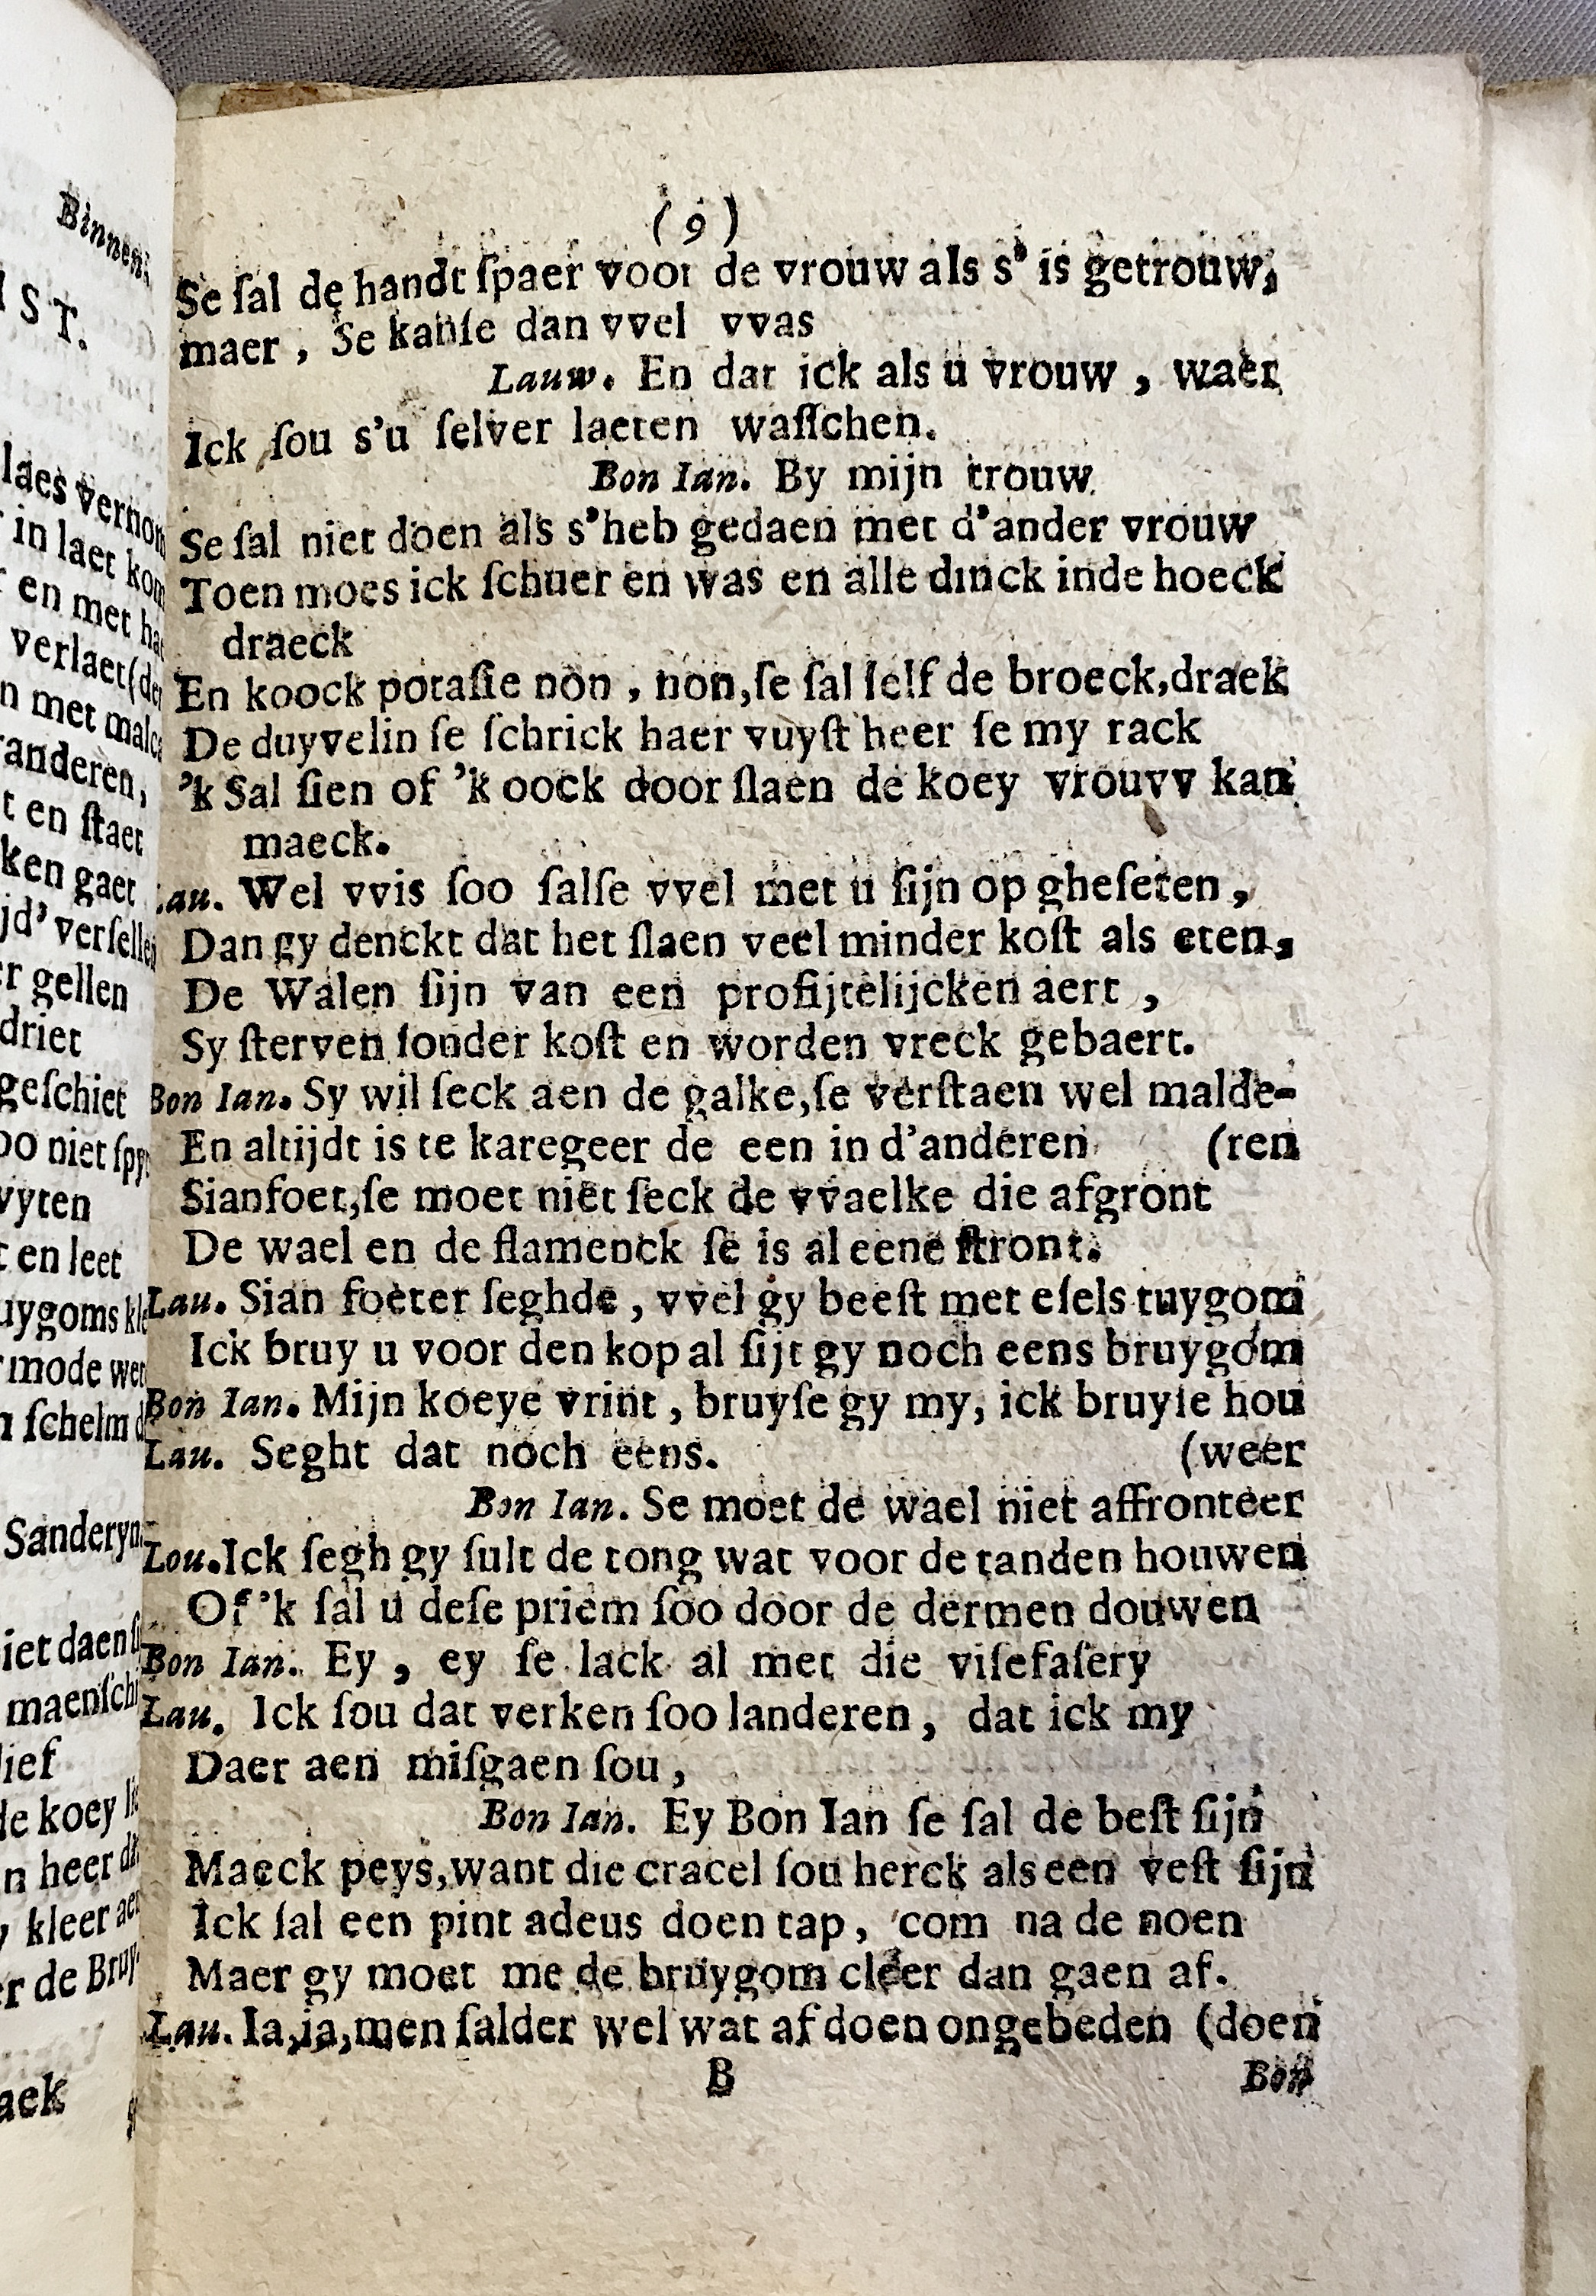 Binnen:
IST.
laes vernom
in laet kom
en met ha
verlaet (der
n met malc
anderen,
t en ſtaet
ken gaet
jd' verſellen
er gellen
driet
geſchiet
oo niet ſpy
vyten
t en leet
uygoms kle
mode wer
n ſchelm d
Sanderyn
iet daen ſ
maenſch
lief
de koey li
n heer di
y kleer aen
er de Bruy
aek
(9)
Se ſal de handt ſpaer voor de vrouw als s' is getrouw,
maer, Se kanſe dan vvel vvas
Lauw. En dat ick als u vrouw, waer
Ick ſou s'u ſelver laeten waſſchen.
Bon Ian. By mijn trouw
Se ſal niet doen als s'heb gedaen met d'ander vrouw
Toen moes ick ſchuer en was en alle dinck inde hoeck
draeck
En koock potaſie non, non, ſe ſal ſelf de broeck, draek
De duyvelin ſe ſchrick haer vuyſt heer ſe my rack
'k Sal ſien of 'k oock door ſlaen de koey vrouvv kan
maeck.
Lau. Wel vvis ſoo ſalſe vvel met u ſijn op gheſeten,
Dan gy denckt dat het ſlaen veel minder koſt als eten,
De Walen ſijn van een profijtelijcken aert,
Sy ſterven ſonder koſt en worden vreck gebaert.
Bon Ian. Sy wil ſeck aen de galke, ſe verſtaen wel malde-
En altijdt is te karegeer de een in d'anderen (ren
Sianfoet, ſe moet niet ſeck de vvaelke die afgront
De wael en de flamenck ſe is al eene ſtront.
Lau. Sian foeter ſeghde, vvel gy beeſt met eſels tuygom
Ick bruy u voor den kop al ſijt gy noch eens bruygom
Bon Ian. Mijn koeye vrint, bruyſe gy my, ick bruyſe hou
Lau. Seght dat noch eens. (weer
Bon Ian. Se moet de wael niet affronteer
Lou. Ick ſegh gy ſult de tong wat voor de tanden houwen
Of 'k ſal u deſe priem ſoo door de dermen douwen
Bon Ian. Ey, ey ſe lack al met die viſefaſery
Lau. Ick ſou dat verken ſoo landeren, dat ick my
Daer aen miſgaen ſou,
Bon Ian. Ey Bon Ian ſe ſal de beſt ſijn
Maeck peys, want die cracel ſou herck als een veſt ſijn
Ick ſal een pint adeus doen tap, com na de noen
Maer gy moet me de bruygom cleer dan gaen af.
Lau. Ia, ja, men ſalder wel wat af doen ongebeden (doen
B Bon